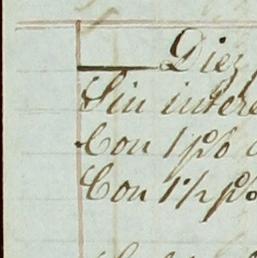 Diez
Sin intere
Con 1 p%
Con 1½ p%